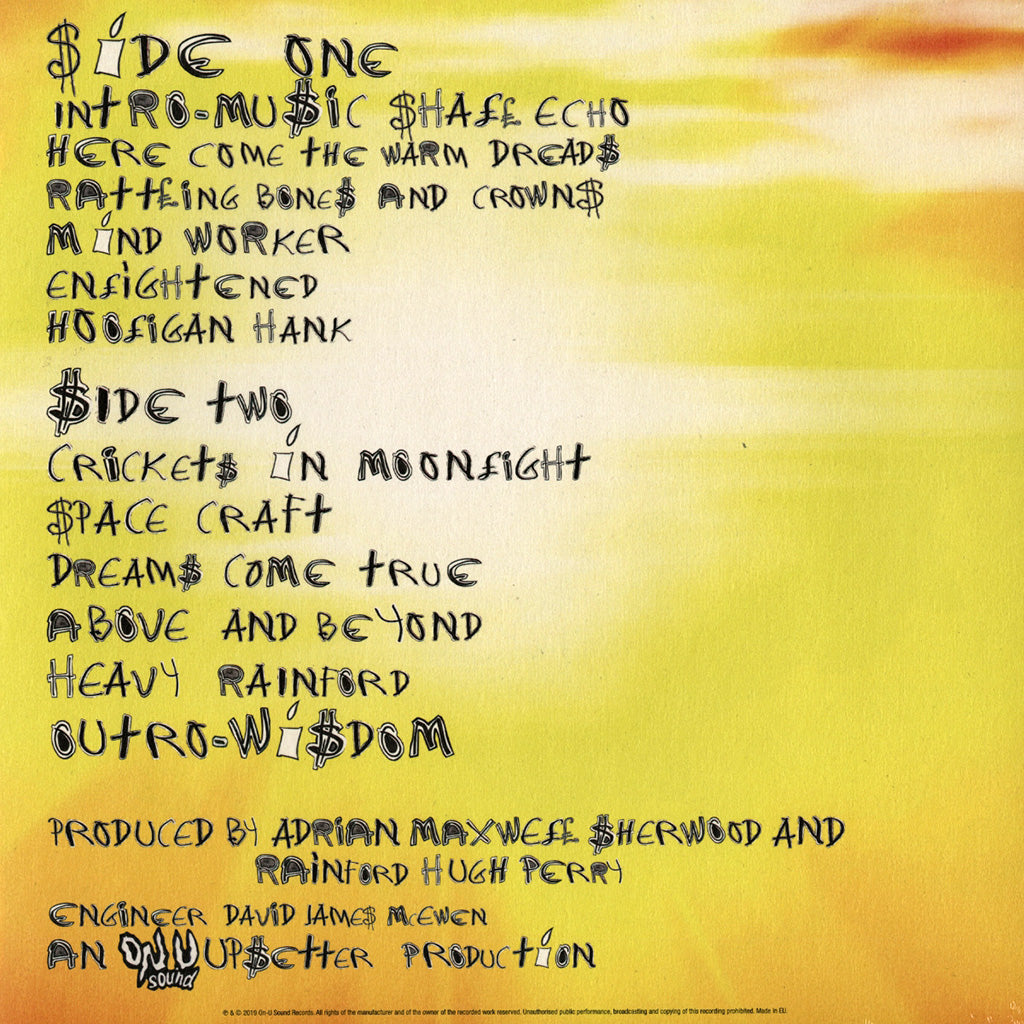 $iDE ONE
INTRO-MU$IC $HA££ ECHO
HERE COME THE WARM DREAD$
RATT£ING BONE$ AND CROWN$
MiND WORKER
EN£IGHTENED
HOO£IGAN HANK
$IDE TWO
CRICKET$ iN MOON£IGHT
$PACE CRAFT
DREAM$ COME TRUE
ABOVE AND BEYOND
HEAVY RAINFORD
OUTRO-Wi$DOM
PRODUCED BY ADRIAN MAXWE££ $HERWOOD AND
RAINFORD HUGH PERRY
ENGINEER DAVID JAME$ McEWEN
AN ON U SOUND UP$ETTER PRODUCTiON
℗ & © 2019 On-U Sound Records. All rights of the manufacturer and of the owner of the recorded work reserved. Unauthorised public performance, broadcasting and copying of this recording prohibited. Made in EU.